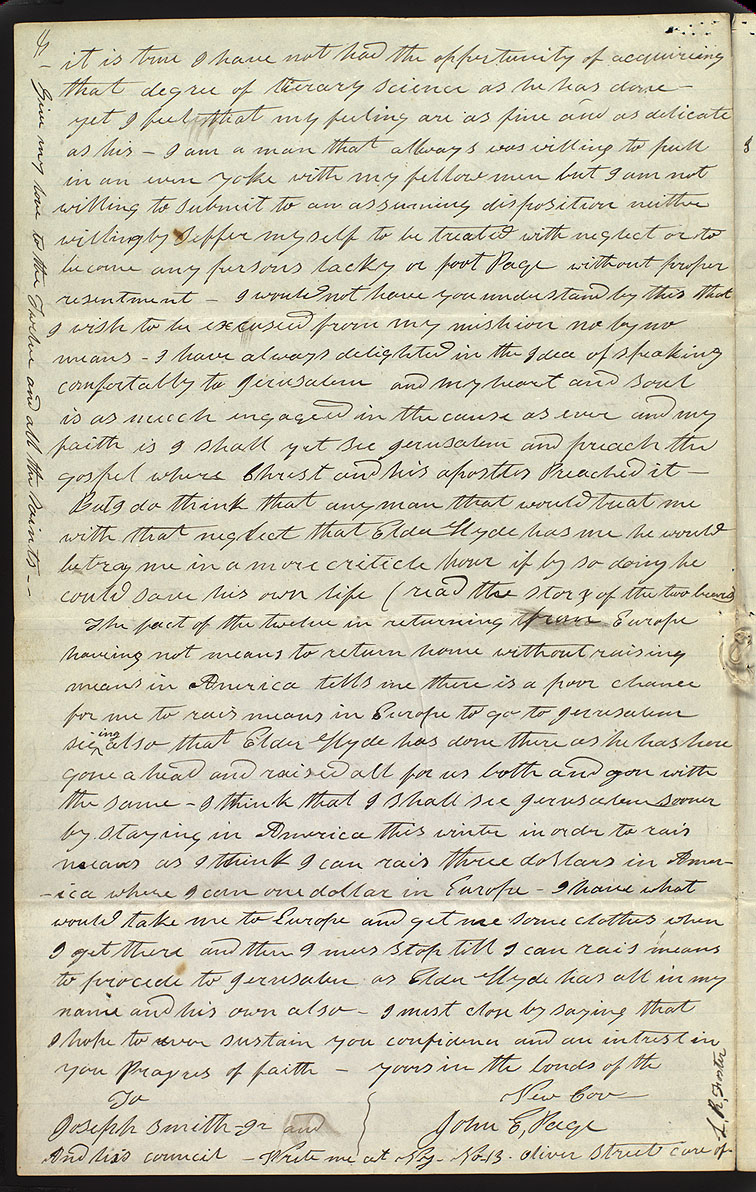 it is true I have not had the oppertunity of acquireing
that degree of literary science as he has done –
yet I feel that my feeling are as fine and as delicate
as his – I am a man that allways was willing to pull
in an even yoke with my fellow men but I am not
willing to submit to an assuming disposition neither
willingly suffer myself to be treated with neglect or to
become any persons lacky or foot Page without proper
resentment – I would not have you understand by this that
I wish to be excused from my mishion no by no
means – I have always delighted in the Idea of speaking
comfortably to Jerusalem and my heart and soul
is as much engaged in the cause as ever and my
faith is I shall yet see Jerusalem and preach the
gospel where Christ and his apostles Preached it –
But I do think that any man that would treat me
with that neglect that Elder Hyde has me he would
betray me in a more criticle hour if by so doing he
could save his own life (read the story of the two bears)
The fact of the twelve in returning from Europe
haveing not means to return home without raising
means in America tells me there is a poor chance
for me to rais means in Europe to go to Jerusalem
seeing also that Elder Hyde has done there as he has here
gone a head and raised all for us both and gon with
the same – I think that I shall see Jerusalem sooner
by staying in America this winter in order to rais
means as I think I can rais three dollars in Amer-
-ica where I can one dollar in Europe – I have what
would take me to Europe and get me some clothes when
I get there and then I mus stop till I can rais means
to procede to Jerusalem as Elder Hyde has all in my
name and his own also – I must close by saying that
I hope to ever sustain you confidence and an intrest in
you Prayres of faith – yours in the bonds of the
To New Cov–
Joseph Smith Jr and John E, Page
And his council – Write me at N.y. No. 13. Oliver Street care of
L. R. Foster
– Give my love to the Twelve and all the Saints –